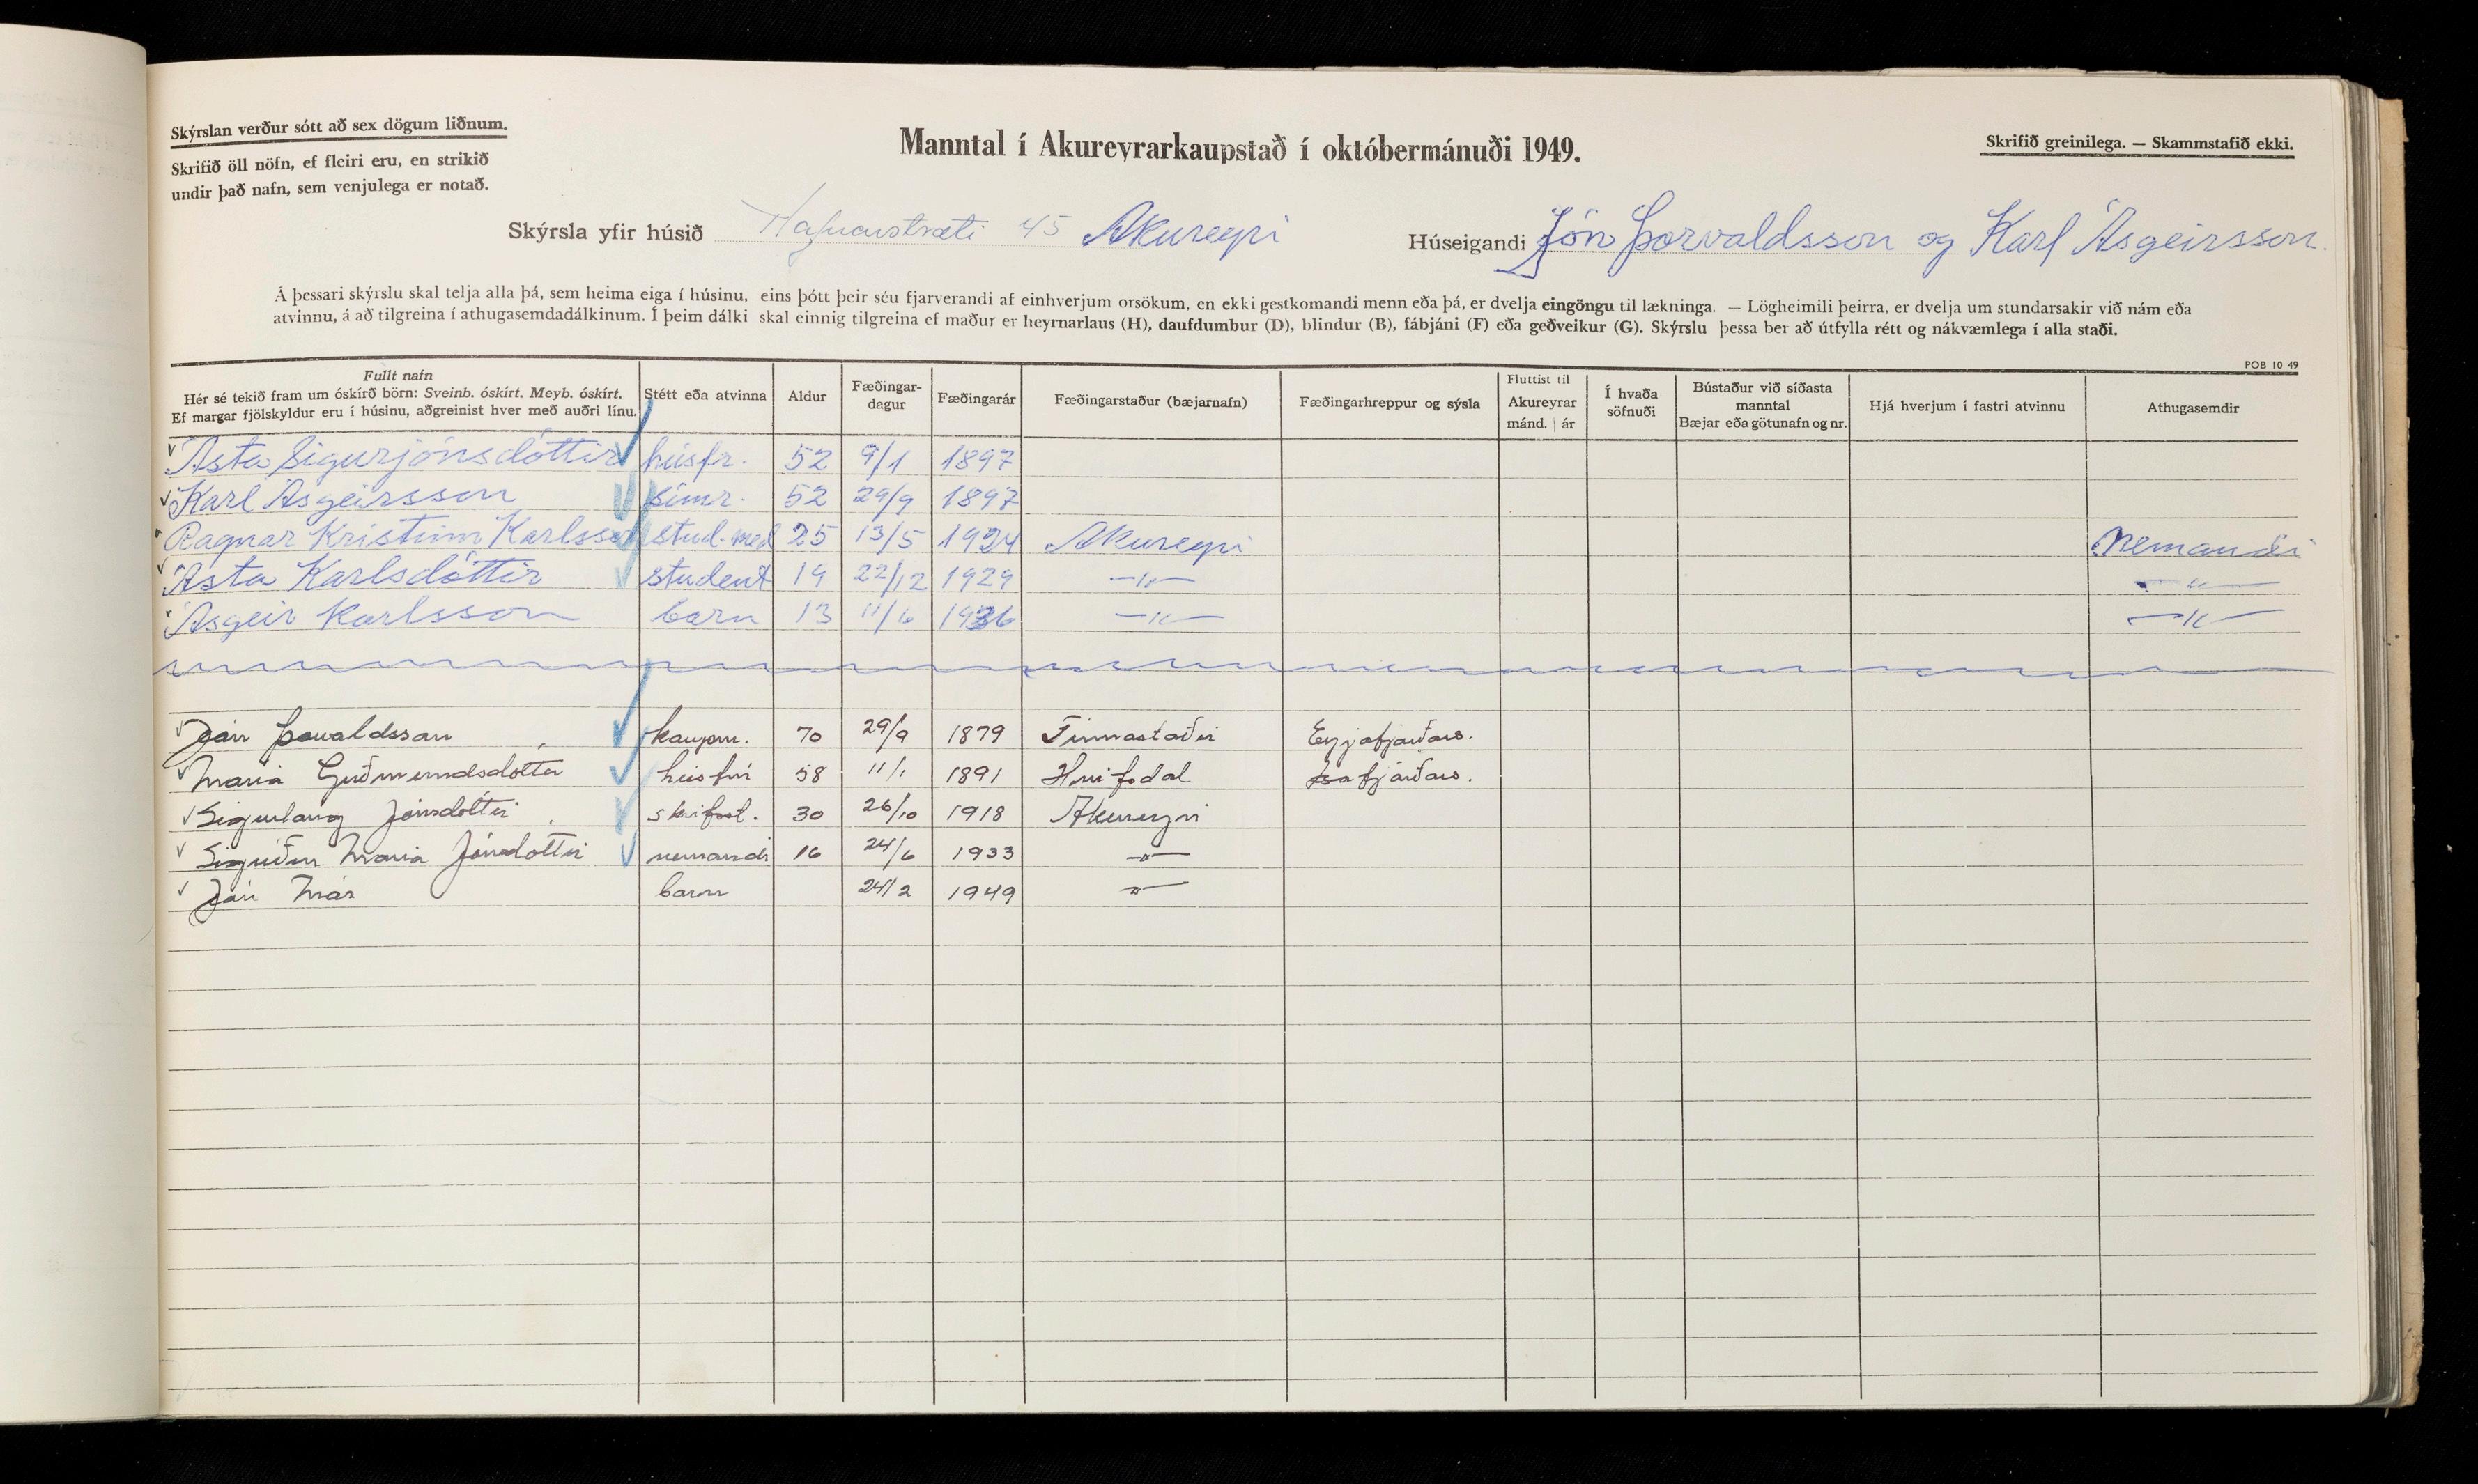 Skýrslan verður sótt að sex dögum liðnum.
Skrifið öll nöfn, ef fleiri eru, en strikið
undir það nafn, sem venjulega er notað.
Manntal í Akureyrarkaupstað í októbermánuði 1949.
Skrifið greinilega. — Skammstafið ekki.
Skýrsla yfir húsið Hafnarstræti 45 Akureyri
Húseigandi Jón Þorvaldsson og Karl Ásgeirsson.
Á þessari skýrslu skal telja alla þá, sem heima eiga í húsinu, eins þótt þeir séu fjarverandi af einhverjum orsökum, en ekki gestkomandi menn eða þá, er dvelja eingöngu til lækninga. — Lögheimili þeirra, er dvelja um stundarsakir við nám eða
atvinnu, á að tilgreina í athugasemdadálkinum. Í þeim dálki skal einnig tilgreina ef maður er heyrnarlaus (H), daufdumbur (D), blindur (B), fábjáni (F) eða geðveikur (G). Skýrslu þessa ber að útfylla rétt og nákvæmlega í alla staði.
POB 10 49
Fullt nafn
Hér sé tekið fram um óskírð börn: Sveinb. óskírt. Meyb. óskírt.
Ef margar fjölskyldur eru í húsinu, aðgreinist hver með auðri línu.
Stétt eða atvinna
Aldur
Fæðingar-
dagur
Fæðingarár
Fæðingarstaður (bæjarnafn)
Fæðingarhreppur og sýsla
Fluttist til
Akureyrar
mánd. | ár
Í hvaða
söfnuði
Bústaður við síðasta
manntal
Bæjar eða götunafn og nr.
Hjá hverjum í fastri atvinnu
Athugasemdir
Ásta Sigurjónsdóttir húsfr. 52 9/1 1897
Karl Ásgeirsson símr. 52 29/9 1897
Ragnar Kristinn Karlsson stud. med 25 13/5 1924 Akureyri Nemandi
Ásta Karlsdóttir student 19 22/12 1929 —"— —"—
Ásgeir Karlsson barn 13 11/6 1936 —"— —"—
Jón Þorvaldsson kaupm. 70 29/9 1879 Finnastaðir Eyjafjarðars.
María Guðmundsdóttir húsfrú 58 11/1 1891 Hnífsdal Ísafjarðars.
Sigurlaug Jónsdóttir skrifst. 30 26/10 1918 Akureyri
Sigríður María Jónsdóttir nemandi 16 24/6 1933 —"—
Jón Már barn 24/2 1949 —"—